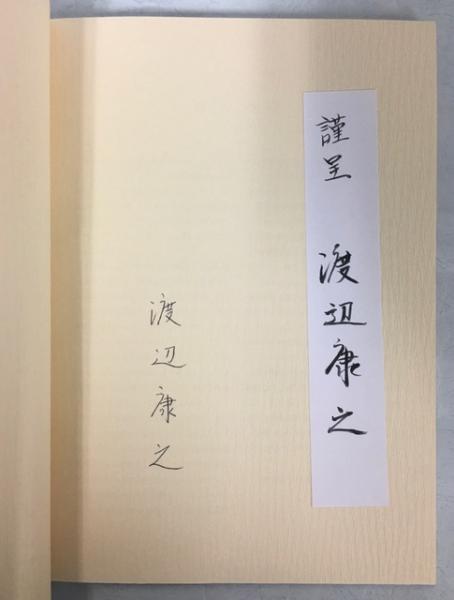 謹呈 渡辺康之
渡辺康之